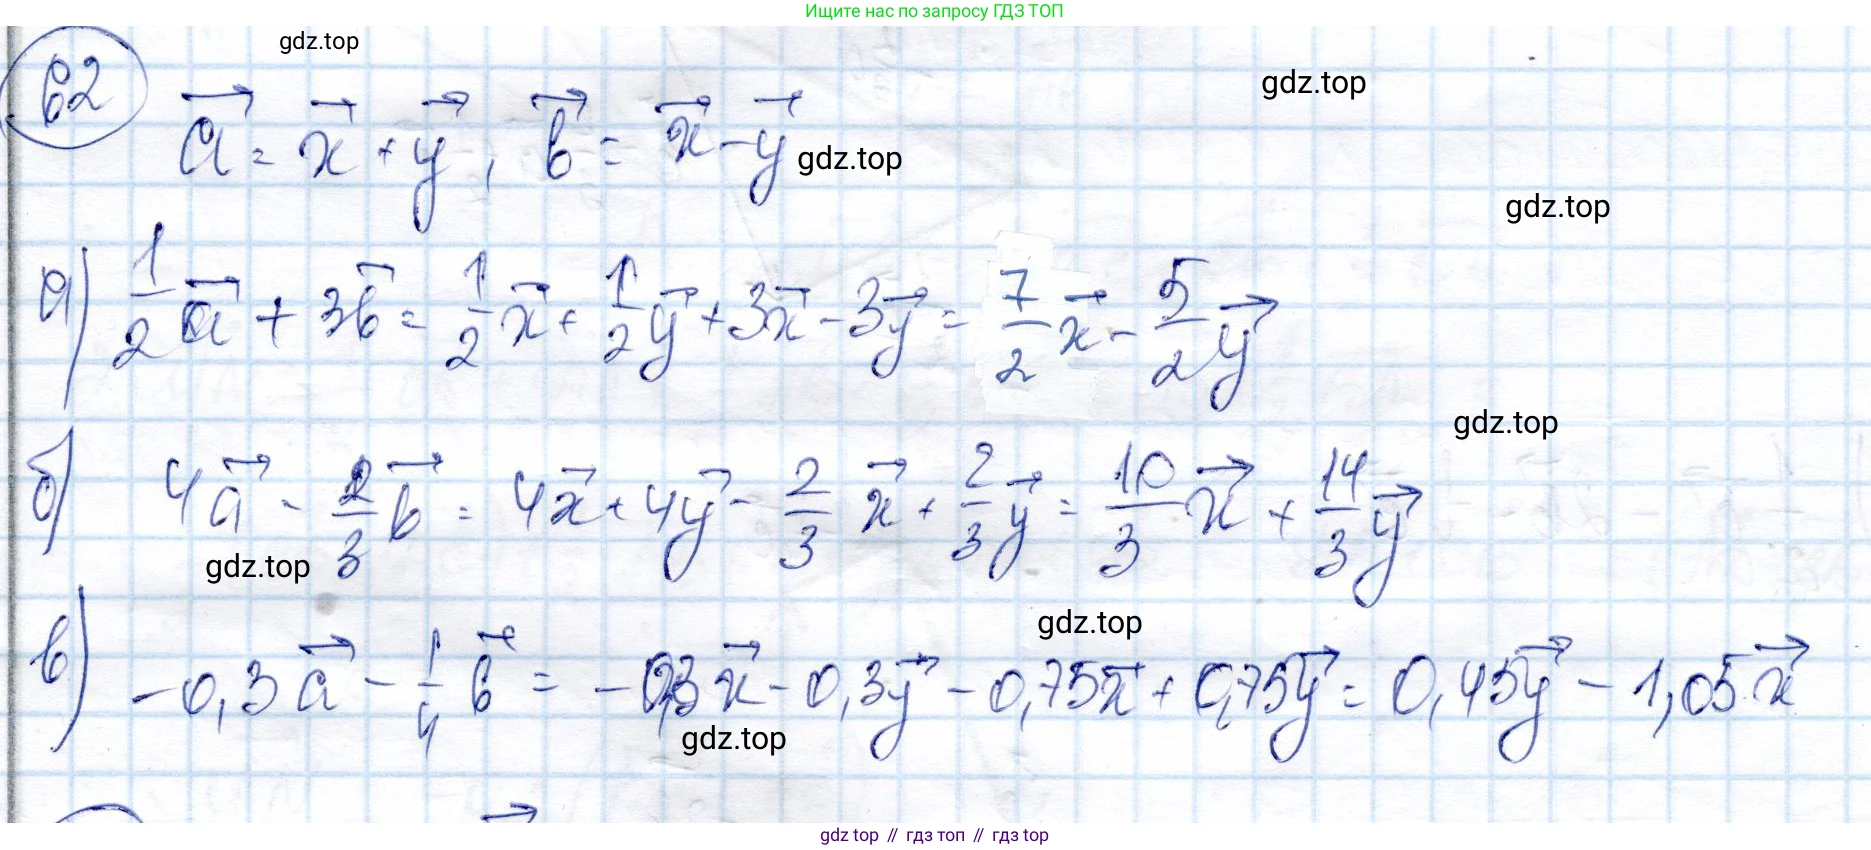 Ищите нас по запросу ГДЗ ТОП
62
gdz.top
gdz.top
a⃗ = x⃗ + y⃗, b⃗ = x⃗ - y⃗
gdz.top
gdz.top
а) 1/2 a⃗ + 3b⃗ = 1/2 x⃗ + 1/2 y⃗ + 3x⃗ - 3y⃗ = 7/2 x⃗ - 5/2 y⃗
gdz.top
б) 4a⃗ - 2/3 b⃗ = 4x⃗ + 4y⃗ - 2/3 x⃗ + 2/3 y⃗ = 10/3 x⃗ + 14/3 y⃗
gdz.top
gdz.top
в) -0,3a⃗ - 1/4 b⃗ = -0,3x⃗ - 0,3y⃗ - 0,75x⃗ + 0,75y⃗ = 0,45y⃗ - 1,05x⃗
gdz.top
gdz top // гдз топ // gdz top